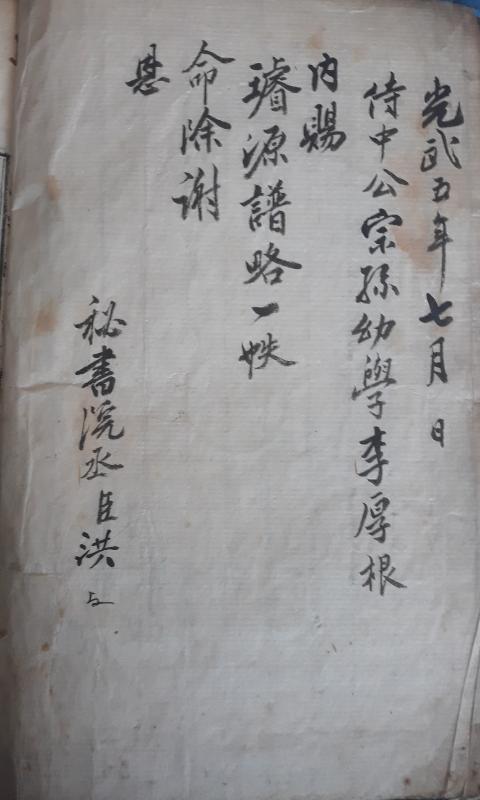 光武五年七月 日
侍中公宗孫幼學李厚根
內賜
璿源譜略一帙
命除謝
恩
秘書院丞臣洪